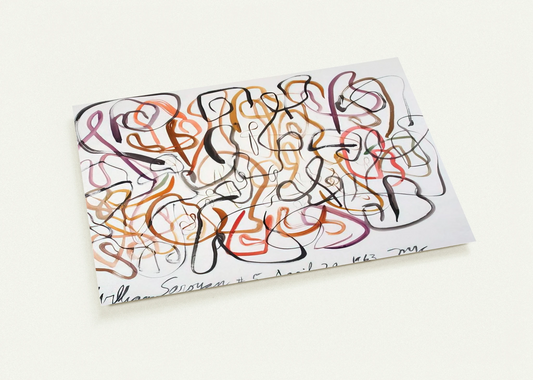 William Saroyan #5 April 1963 NYC